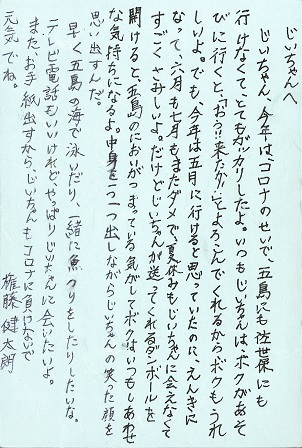 じいちゃんへ
じいちゃん、今年は、コロナのせいで、五島にも佐世保にも
行けなくて、とてもガッカリしたよ。いつもじいちゃんは、ボクがあそ
びに行くと、「おっ!!来たか!!」てよろこんでくれるからボクもうれ
しいよ。でも、今年は五月に行けると思っていたのに、えんきに
なって、六月も七月もまたダメで、夏休みもじいちゃんに会えなくて
すごくさみしいよ。だけどじいちゃんが送ってくれるダンボールを
開けると、五島のにおいがつまっている気がしてボクはいつもしあわせ
な気持ちになるよ。中身を一つ一つ出しながらじいちゃんの笑った顔を
思い出すんだ。
早く五島の海で泳いだり、一緒に魚つりをしたりしたいな。
テレビ電話もいいけれどやっぱりじいちゃんに会いたいよ。
また、お手紙出すから、じいちゃんもコロナに負けないで
元気でね。
権藤健太朗